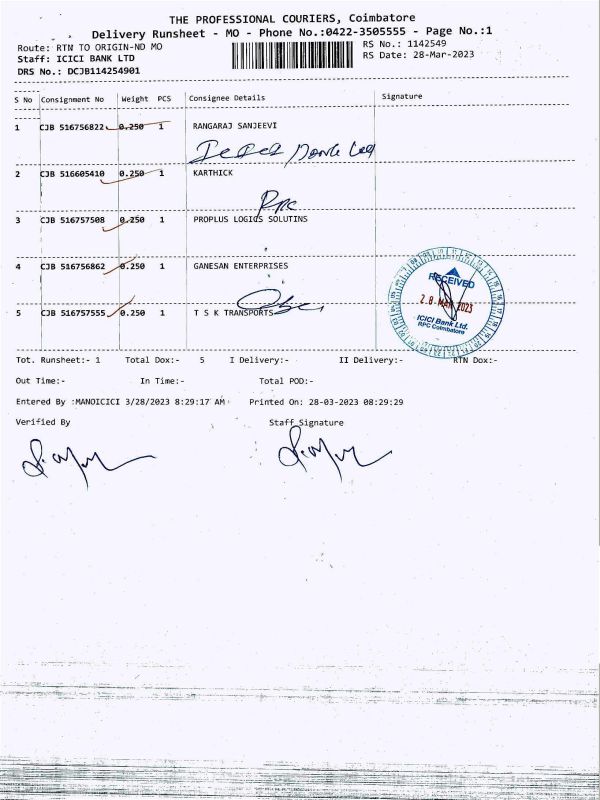 THE PROFESSIONAL COURIERS, Coimbatore
Delivery Runsheet - MO - Phone No.:0422-3505555 - Page No.:1
Route: RTN TO ORIGIN-ND MO
RS No.: 1142549
Staff: ICICI BANK LTD
RS Date: 28-Mar-2023
DRS No.: DCJB114254901
S No Consignment No Weight PCS Consignee Details Signature
1 CJB 516756822 0.250 1 RANGARAJ SANJEEVI
2 CJB 516605410 0.250 1 KARTHICK
RPC
3 CJB 516757508 0.250 1 PROPLUS LOGICS SOLUTINS
4 CJB 516756862 0.250 1 GANESAN ENTERPRISES
5 CJB 516757555 0.250 1 T S K TRANSPORTS
RECEIVED
28 MAR 2023
ICICI Bank Ltd.
RPC Coimbatore
Tot. Runsheet:- 1 Total Dox:- 5 I Delivery:- II Delivery:- RTN Dox:-
Out Time:- In Time:- Total POD:-
Entered By :MANOICICI 3/28/2023 8:29:17 AM Printed On: 28-03-2023 08:29:29
Verified By Staff Signature